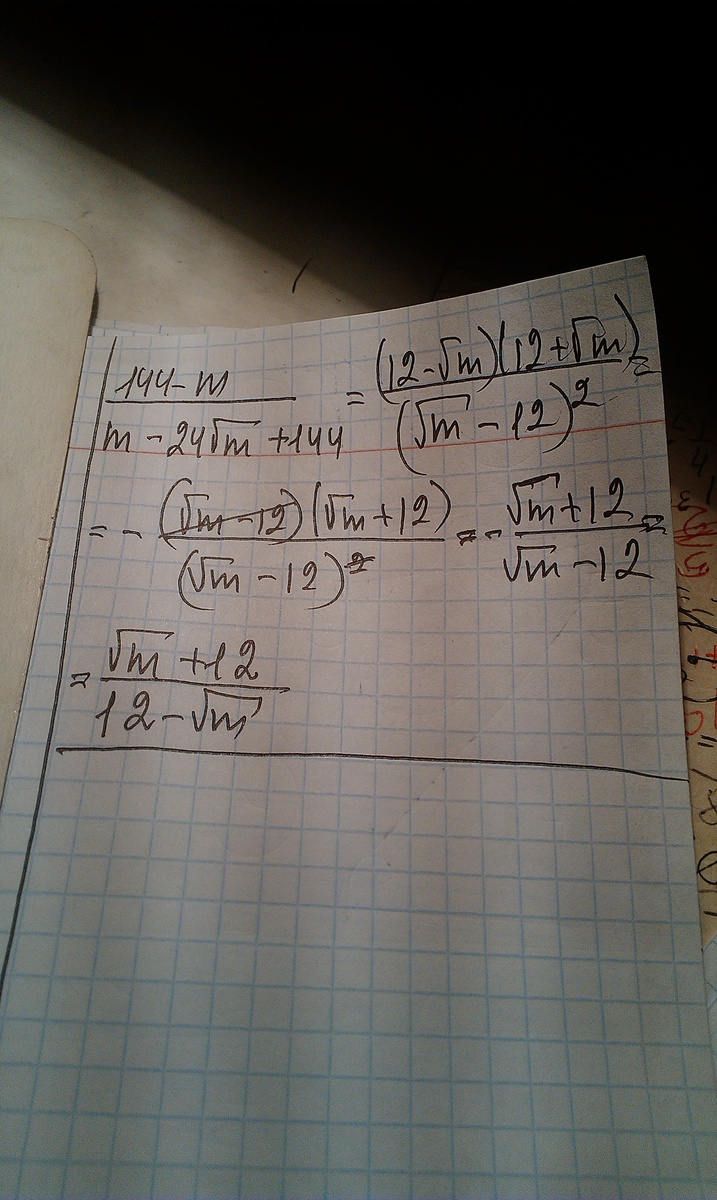 (144-m)/(m - 24√m + 144) = ((12-√m)(12+√m))/(√m - 12)² =
= - ((√m - 12)(√m + 12))/(√m - 12)² = - (√m + 12)/(√m - 12) =
= (√m + 12)/(12 - √m)